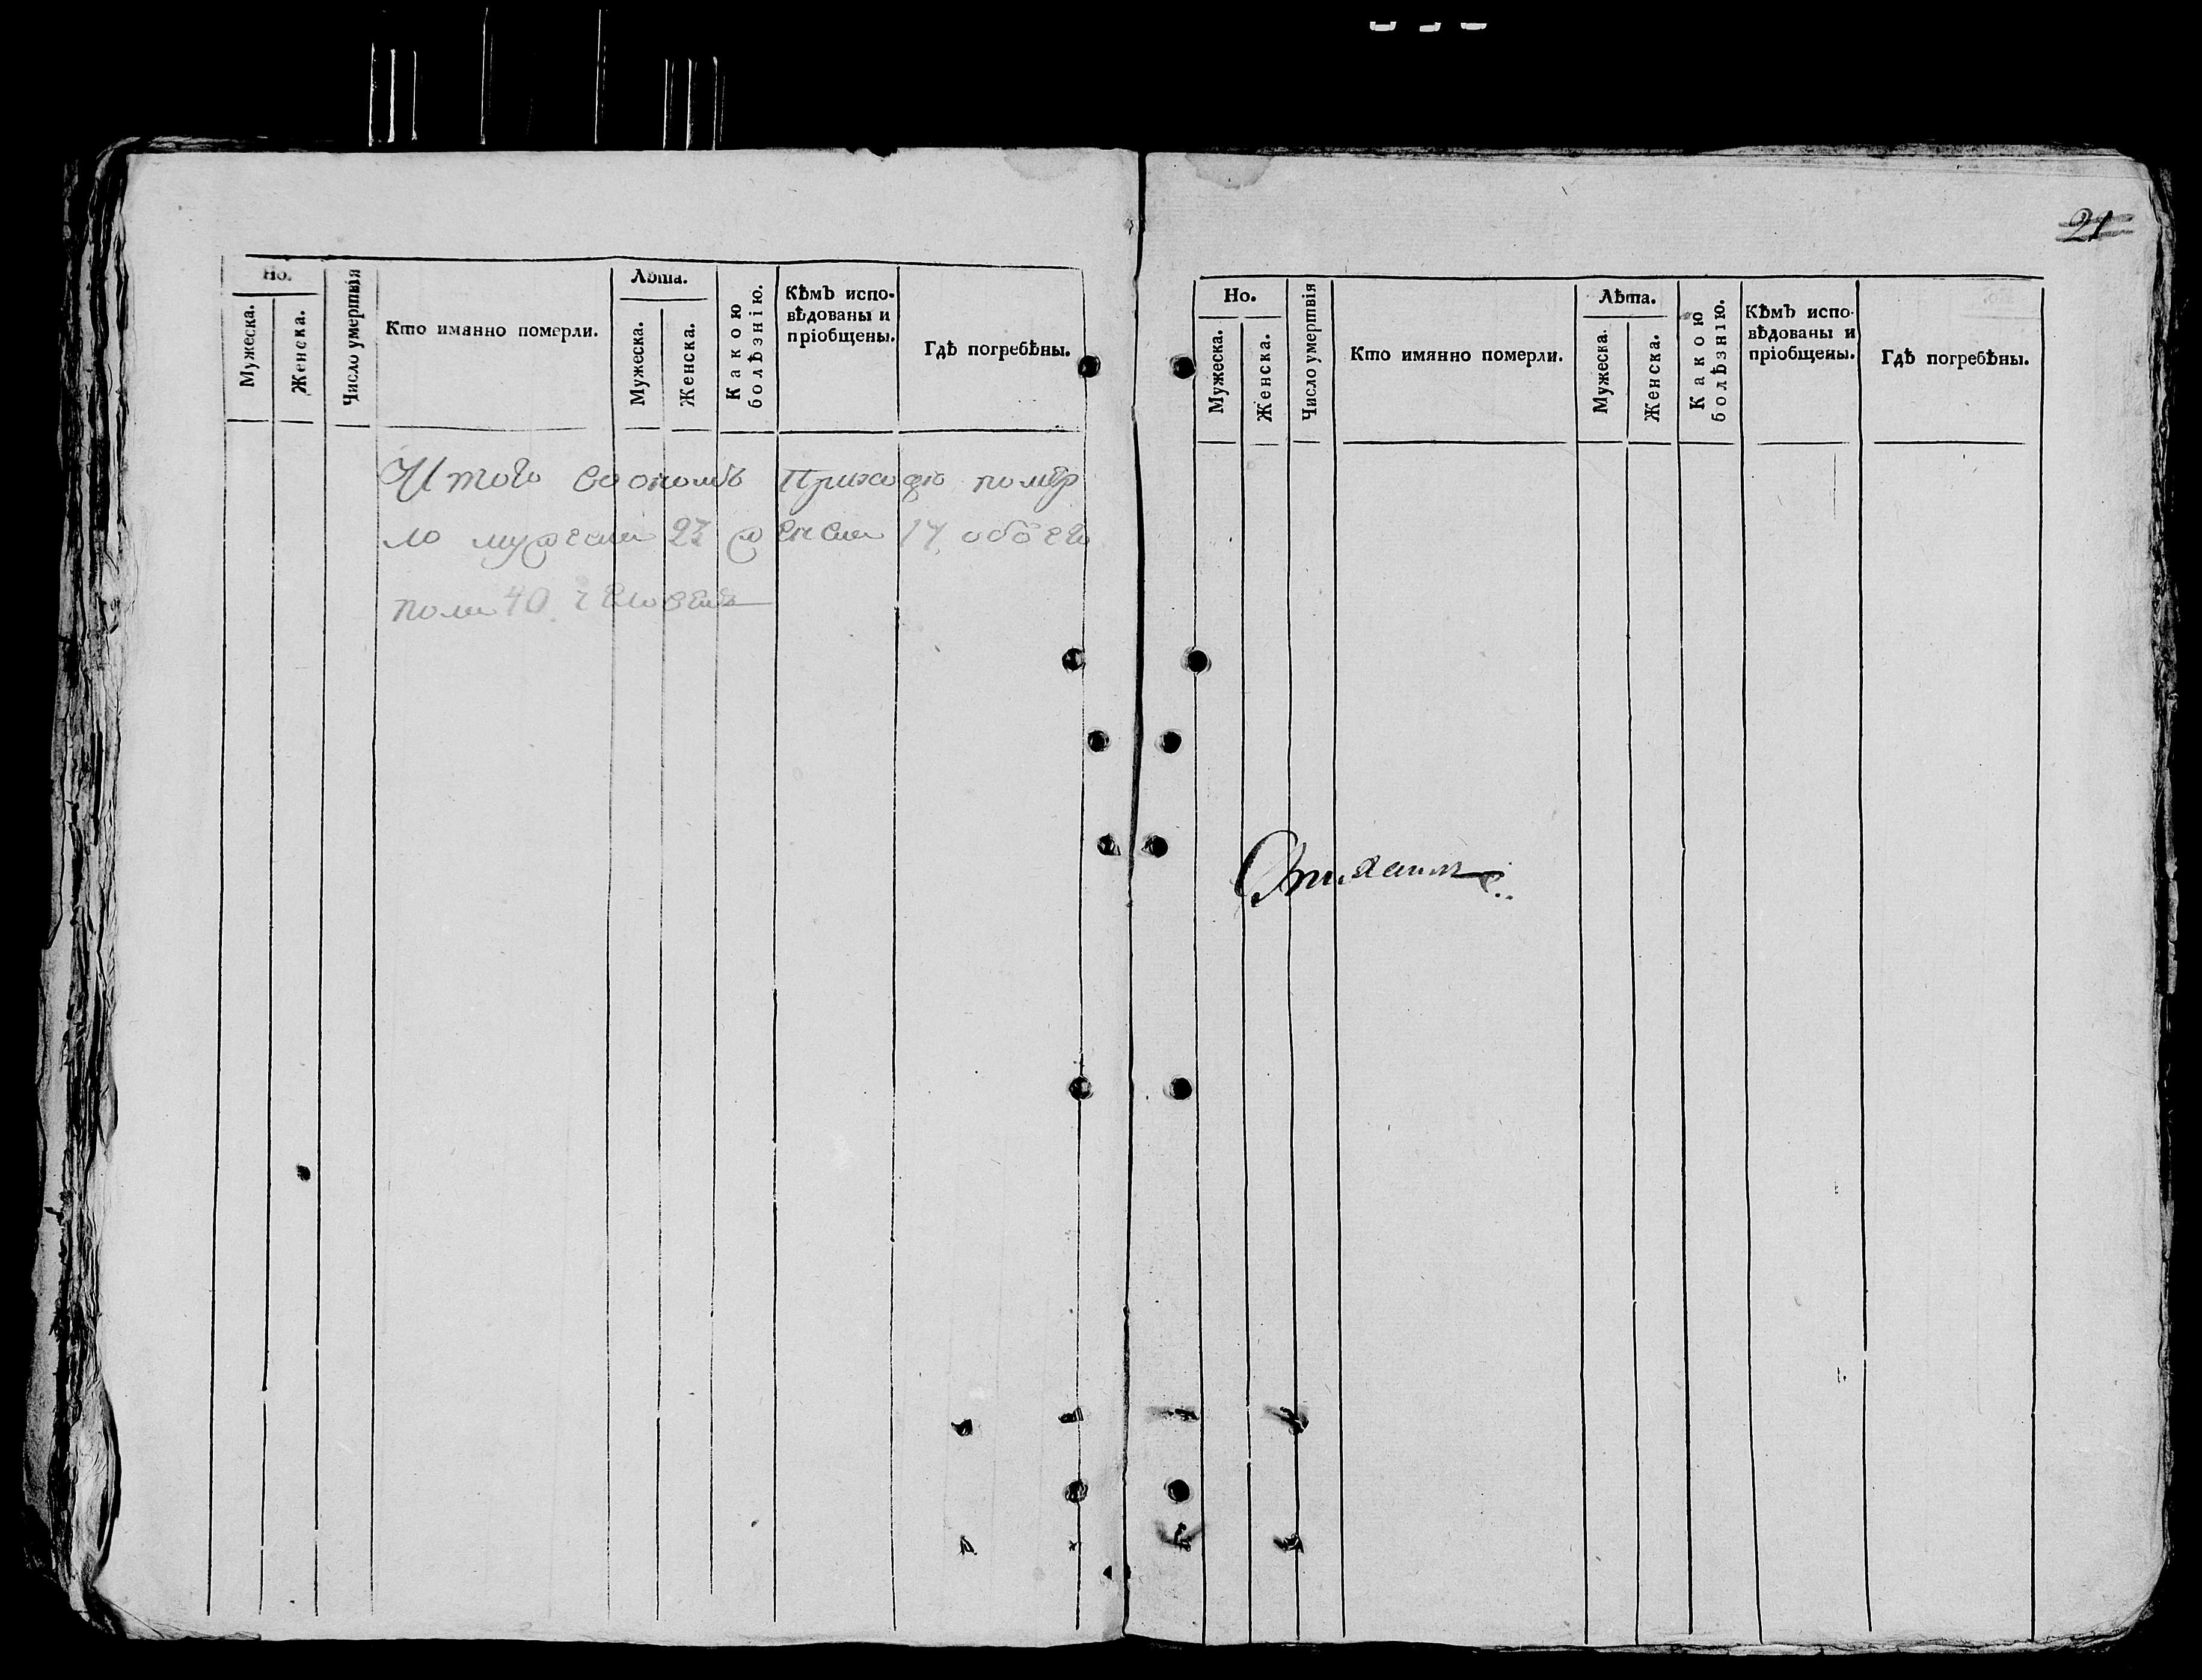 Но.
Мужеска.
Женска.
Число умертвія
Кто имянно померли.
Лѣта.
Мужеска.
Женска.
Какою
болѣзнію.
Кѣмъ испо-
вѣдованы и
пріобщены.
Гдѣ погребѣны.
Итого приходѣ помер
ло мужеска 23 женска 17 обоего
пола 40 человекъ
21
Но.
Мужеска.
Женска.
Число умертвія
Кто имянно померли.
Лѣта.
Мужеска.
Женска.
Какою
болѣзнію.
Кѣмъ испо-
вѣдованы и
пріобщены.
Гдѣ погребѣны.